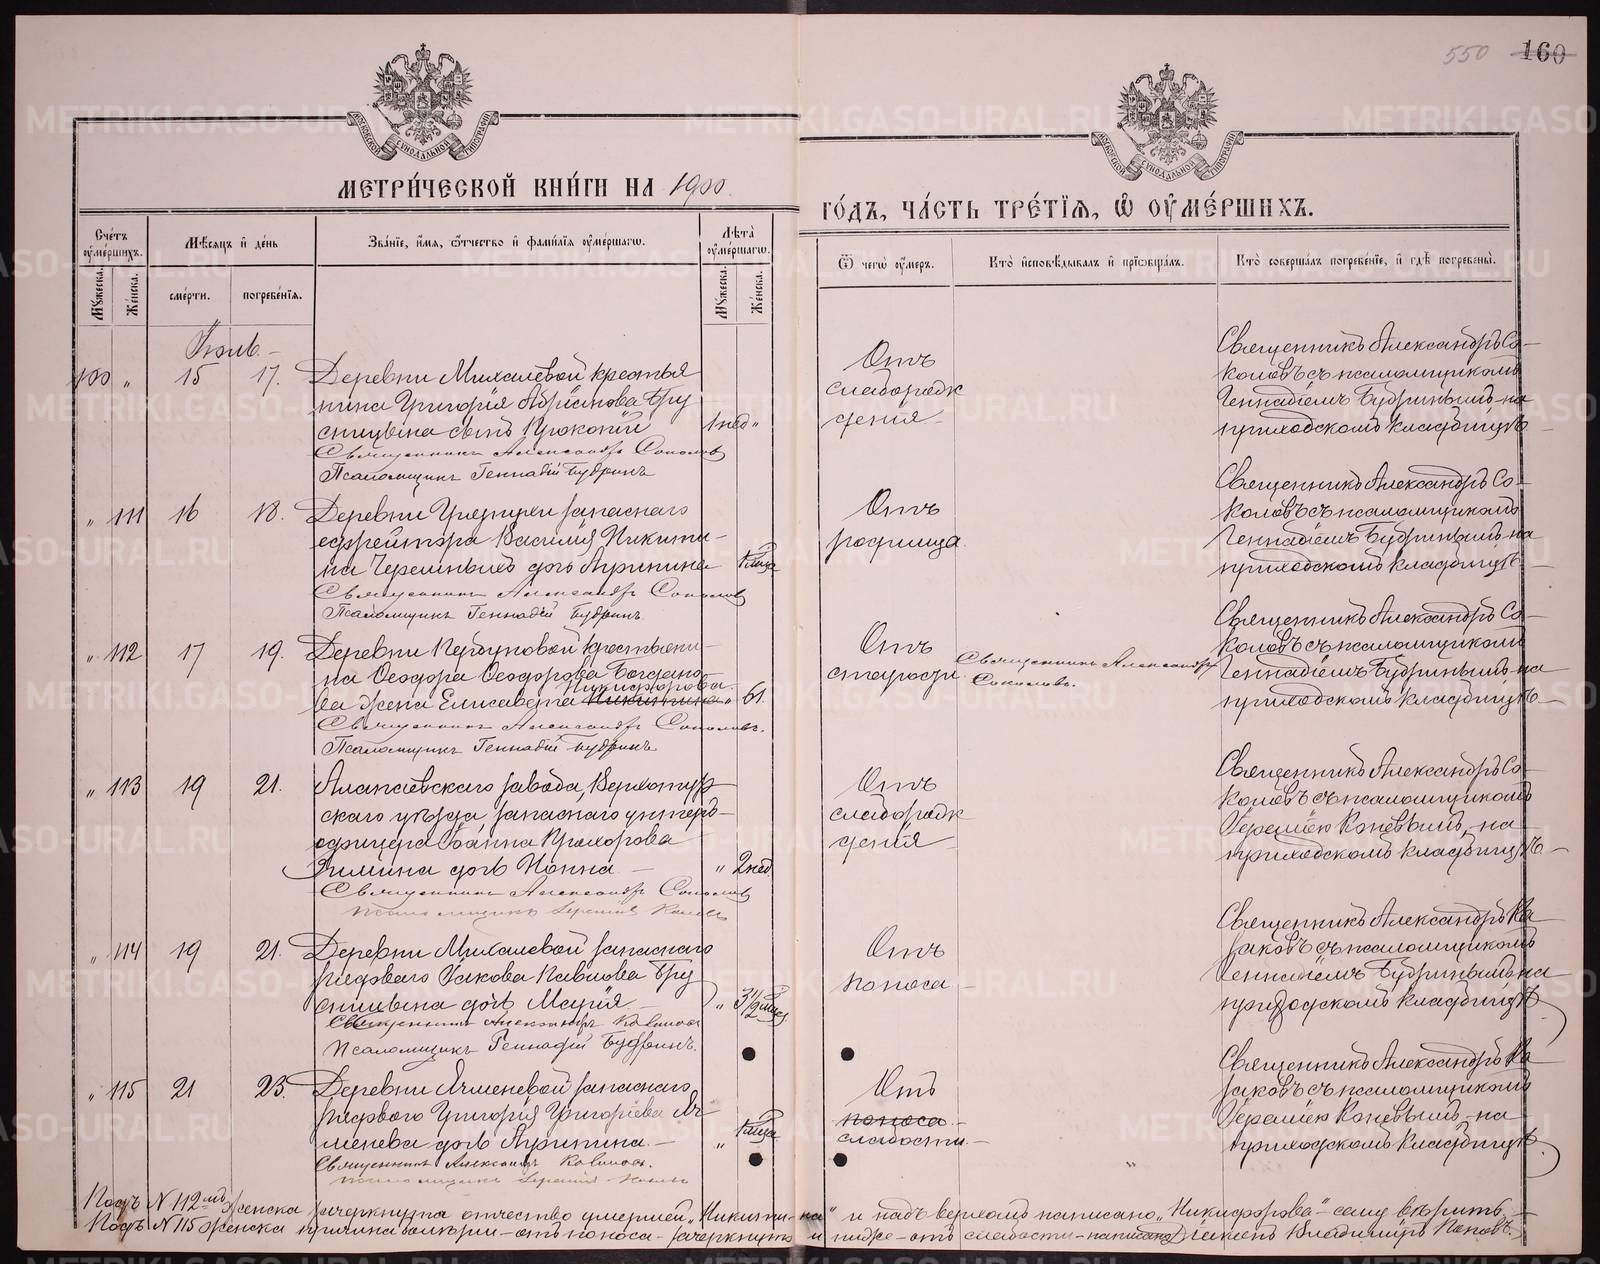 550 160
МОСКОВСКОЙ СѴНОДАЛЬНОЙ ТИПОГРАФІИ
МОСКОВСКОЙ СѴНОДАЛЬНОЙ ТИПОГРАФІИ
МЕТРИ́ЧЕСКОЙ КНИ́ГИ НА 1900
ГО́ДЪ, ЧА́СТЬ ТРЕ́ТЇѦ, Ѡ҆ ОУ҆МЕ́РШИХЪ.
Сче́тъ оу҆ме́ршихъ.
Мꙋ́жеска.
Же́нска.
Мѣ́сѧцъ и҆ де́нь
сме́рти.
погребе́нїѧ.
Зва́нїе, и҆́мѧ, ѻ҆́тчество и҆ фами́лїѧ оу҆ме́ршагѡ.
Лѣ́та оу҆ме́ршагѡ.
Мꙋ́жеска.
Же́нска.
Ѿ чегѡ̀ оу҆́меръ.
Кто̀ и҆сповѣ́дывалъ и҆ прїѡбща́лъ.
Кто̀ соверша́лъ погребе́нїе, и҆ гдѣ̀ погребены̀.
Іюль
100 „ 15 17.
Деревни Михалевой крестья
нина Григорія Абрамова Бру
сницына сынъ Прокопій 1 нед „
Священникъ Александръ Соколов
Псаломщикъ Геннадій Бударинъ
Отъ
слаборож
денія
Священникъ Александръ Со-
коловъ съ псаломщикомъ
Геннадіемъ Бударинымъ на
приходскомъ кладбищѣ
„ 111 16 18.
Деревни
запаснаго
ефрейтора Василія Никити-
на Черемныхъ дочь Агрипина
Священникъ Александръ Соколов
Псаломщикъ Геннадій Бударинъ
Отъ
родимца
Священникъ Александръ Со-
коловъ съ псаломщикомъ
Геннадіемъ Бударинымъ на
приходскомъ кладбищѣ
„ 112 17 19.
Деревни
крестьяни-
на Ѳеодора Ѳеодорова Богдано
Никифорова
ва жена Елисавета Никитина „ 61.
Священникъ Александръ Соколовъ.
Псаломщикъ Геннадій Бударинъ
Отъ
старости
Священникъ Александръ
Соколовъ.
Священникъ Александръ Со-
коловъ съ псаломщикомъ
Геннадіемъ Бударинымъ на
приходскомъ кладбищѣ
„ 113 19 21.
Алапаевскаго завода, Верхотур
скаго уѣзда запаснаго унтеръ-
офицера Іоанна Прохорова
Зимина дочь Нонна „ 2 нед
Священникъ Александръ Соколов
псаломщикъ Еремій Конев
Отъ
слаборож
денія
Священникъ Александръ Со-
коловъ съ псаломщикомъ
Іереміею Коневымъ, на
приходскомъ кладбищѣ
„ 114 19 21.
Деревни Михалевой запаснаго
рядоваго Іакова Павлова Бру
сницына дочь Марія „ 3½ мѣс
Священникъ Александръ
Псаломщикъ Геннадій Бударинъ.
Отъ
поноса
Священникъ Александръ Ка
заковъ съ псаломщикомъ
Геннадіемъ Бударинымъ на
приходскомъ кладбищѣ
„ 115 21 23.
Деревни Ячменевой запаснаго
рядового Григорія Григоріева Яч
менева дочь Агрипина „
Священникъ Александръ
псаломщикъ Еремій
Отъ
поноса
слабости
Священникъ Александръ Ка
заковъ съ псаломщикомъ
Іереміею Коневымъ на
приходскомъ кладбищѣ
Подъ № 112мъ женска зачеркнуто отчество умершей „Никитина“ и надъ верхомъ написано „Никифорова“ - сему вѣрить.
Подъ № 115 женска причина болѣзни - отъ поноса - зачеркнуто и ниже - отъ слабости - написано Діаконъ Владимиръ Поповъ.
METRIKI.GASO-URAL.RU